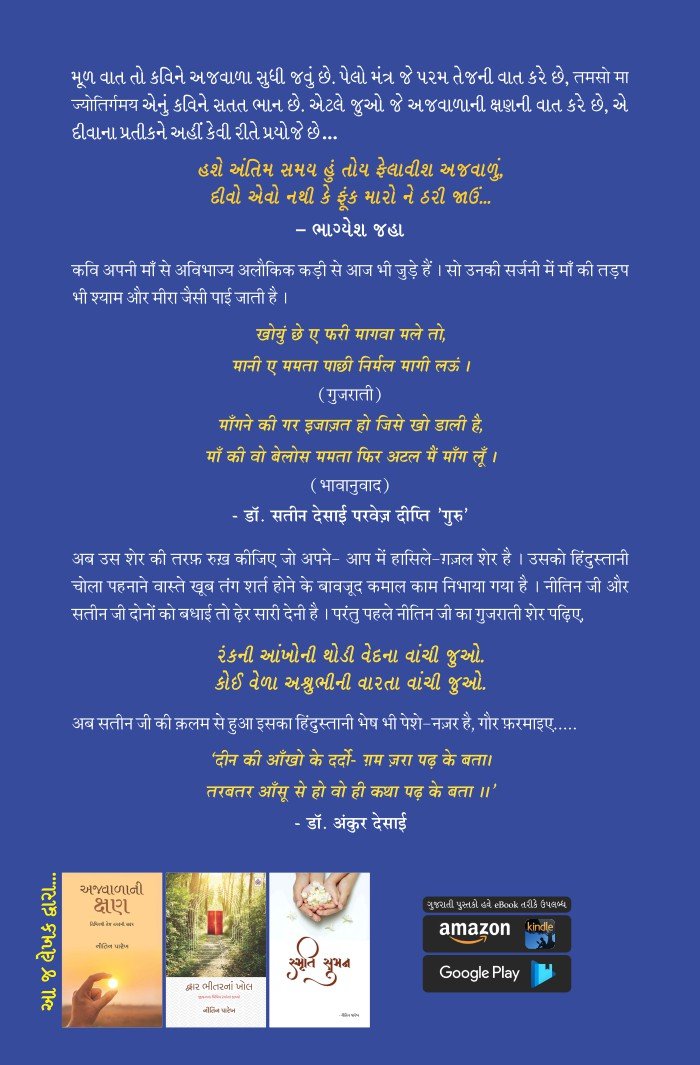 મૂળ વાત તો કવિને અજવાળા સુધી જવું છે. પેલો મંત્ર જે પરમ તેજની વાત કરે છે, तमसो मा
ज्योतिर्गमय એનું કવિને સતત ભાન છે. એટલે જુઓ જે અજવાળાની ક્ષણની વાત કરે છે, એ
દીવાના પ્રતીકને અહીં કેવી રીતે પ્રયોજે છે...
હશે અંતિમ સમય હું તોય ફેલાવીશ અજવાળું,
દીવો એવો નથી કે ફૂંક મારો ને ઠરી જાઉં...
– ભાગ્યેશ જહા
कवि अपनी माँ से अविभाज्य अलौकिक कड़ी से आज भी जुड़े हैं । सो उनकी सर्जनी में माँ की तड़प
भी श्याम और मीरा जैसी पाई जाती है ।
खोयुं छे ए फरी मागवा मले तो,
मानी ए ममता पाछी निर्मल मागी लऊं ।
(गुजराती)
माँगने की गर इजाज़त हो जिसे खो डाली है,
माँ की वो बेलोस ममता फिर अटल मैं माँग लूँ ।
(भावानुवाद)
- डॉ. सतीन देसाई परवेज़ दीप्ति 'गुरु'
अब उस शेर की तरफ़ रुख़ कीजिए जो अपने- आप में हासिले-ग़ज़ल शेर है । उसको हिंदुस्तानी
चोला पहनाने वास्ते खूब तंग शर्त होने के बावजूद कमाल काम निभाया गया है । नीतिन जी और
सतीन जी दोनों को बधाई तो ढ़ेर सारी देनी है । परंतु पहले नीतिन जी का गुजराती शेर पढ़िए,
રંકની આંખોની થોડી વેદના વાંચી જુઓ.
કોઈ વેળા અશ્રુભીની વારતા વાંચી જુઓ.
अब सतीन जी की क़लम से हुआ इसका हिंदुस्तानी भेष भी पेशे-नज़र है, गौर फ़रमाइए.....
'दीन की आँखो के दर्दो- ग़म ज़रा पढ़ के बता।
तरबतर आँसू से हो वो ही कथा पढ़ के बता ।।'
- डॉ. अंकुर देसाई
આ જ લેખક દ્વારા...
અજવાળાની
ક્ષણ
નીતિન પારેખ
દ્વાર ભીતરનાં ખોલ
નીતિન પારેખ
સ્મૃતિ સુમન
- નીતિન પારેખ
ગુજરાતી પુસ્તકો હવે eBook તરીકે ઉપલબ્ધ
amazon
kindle
Google Play